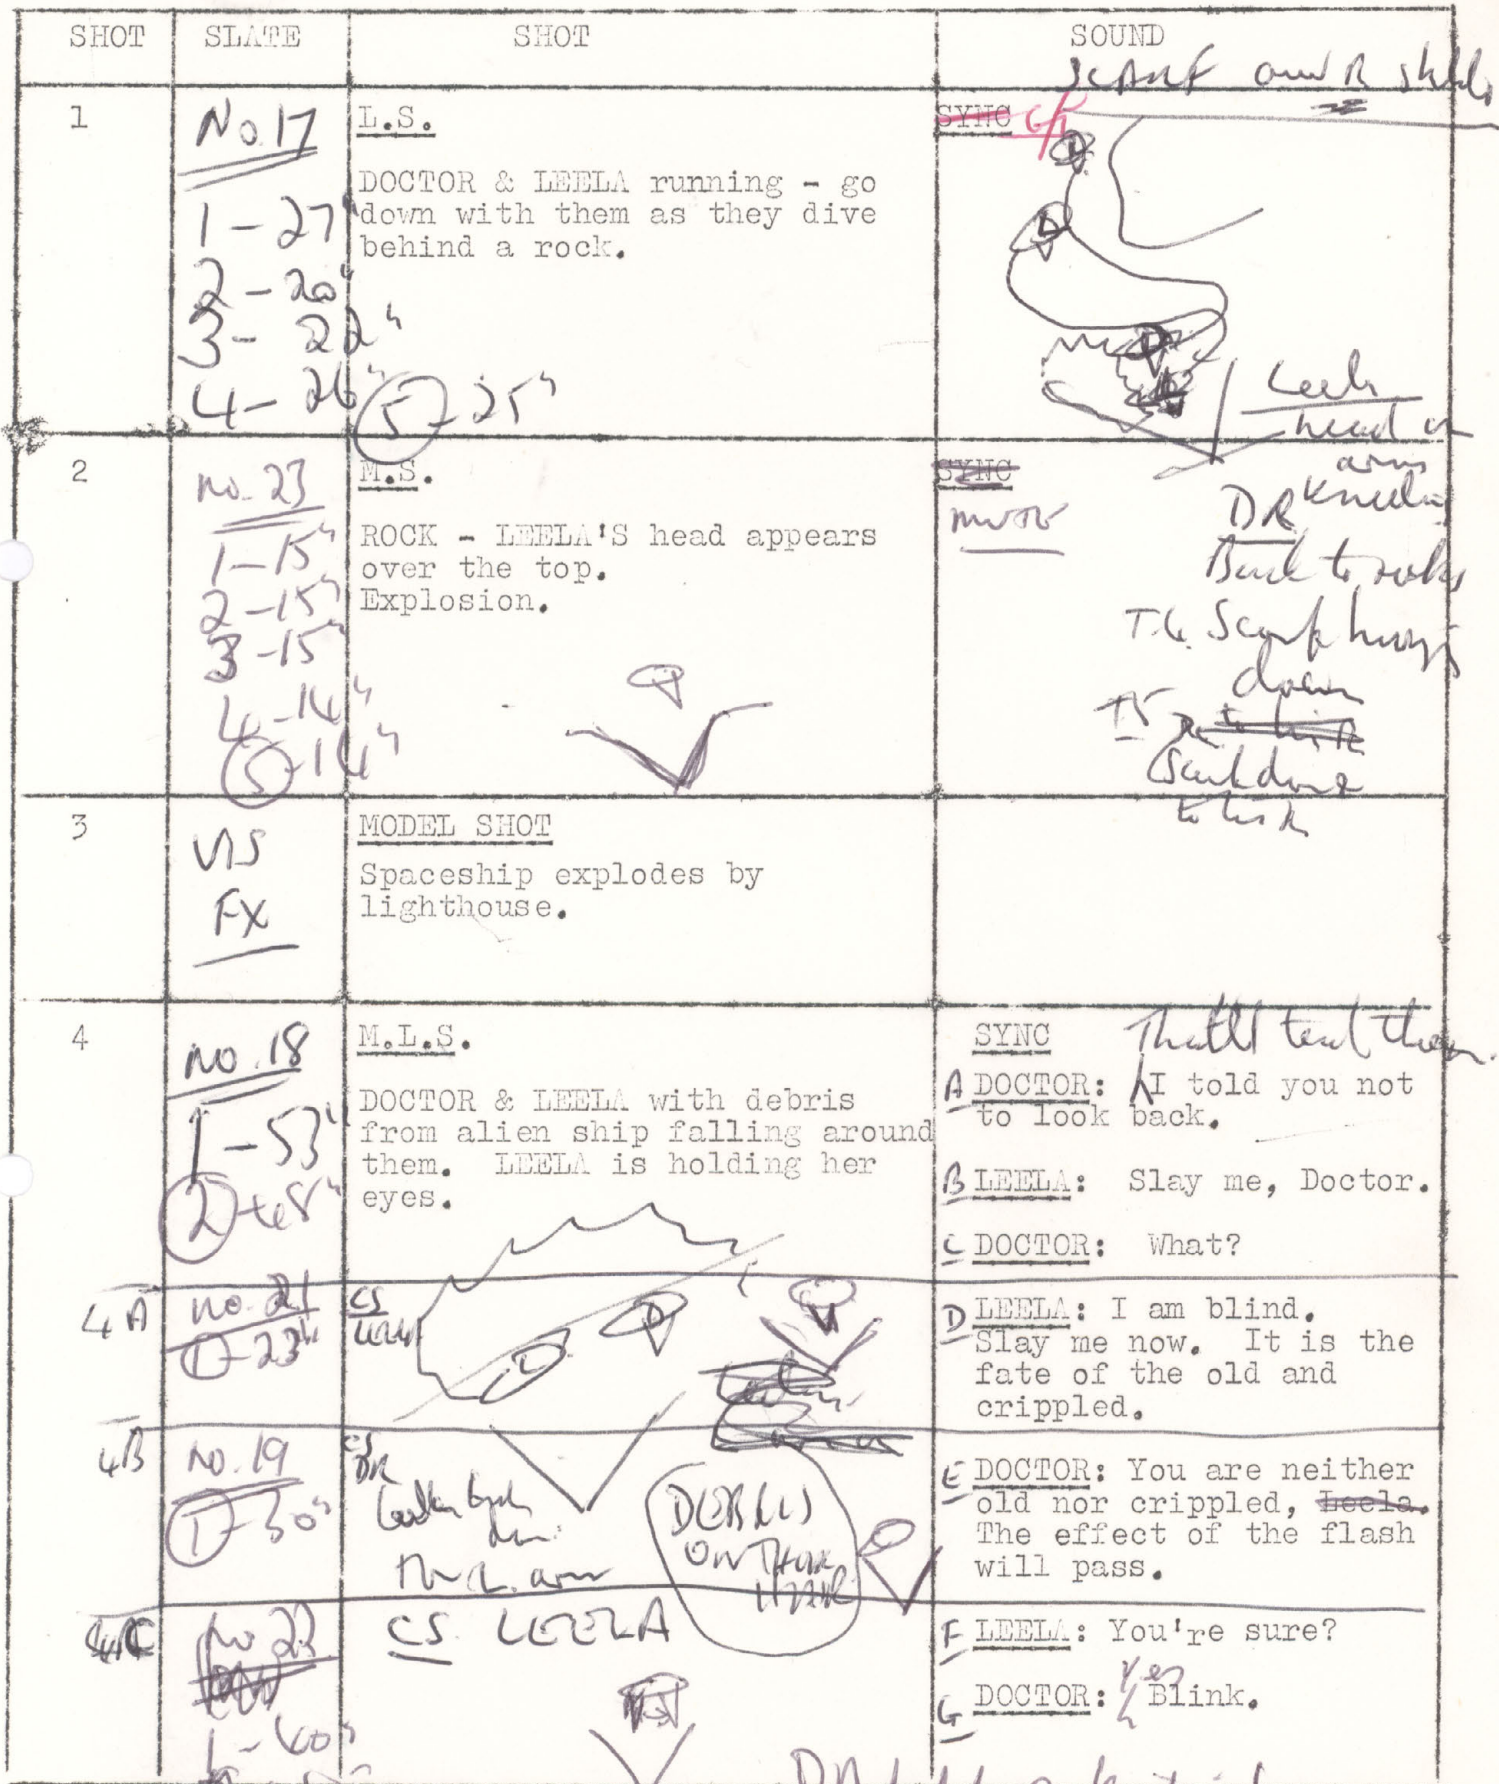 SHOT SLATE SHOT SOUND
SCARF over R
1
No. 17
1 - 27"
2 - 20"
3 - 22"
4 - 26"
5 - 25"
L.S.
DOCTOR & LEELA running - go
down with them as they dive
behind a rock.
SYNC
D
D
D
Leela
head on
arms
2
no. 23
1 - 15"
2 - 15"
3 - 15"
4 - 14"
5 - 14"
M.S.
ROCK - LEELA'S head appears
over the top.
Explosion.
SYNC
mute
DR Kneeling
Back to rocks
Scarf hanging
down
T5
3
VIS
FX
MODEL SHOT
Spaceship explodes by
lighthouse.
4
no. 18
1 - 53"
2
M.L.S.
DOCTOR & LEELA with debris
from alien ship falling around
them. LEELA is holding her
eyes.
SYNC
That'll teach them.
A DOCTOR: I told you not
to look back.
B LEELA: Slay me, Doctor.
C DOCTOR: What?
4A
no. 21
1 - 23"
CS
LEELA
L
D
D LEELA: I am blind.
Slay me now. It is the
fate of the old and
crippled.
4B
no. 19
1 - 30"
CS
DR
L. arm
DEBRIS
ON THEIR
E DOCTOR: You are neither
old nor crippled, Leela.
The effect of the flash
will pass.
4C
no. 22
CS LEELA
F LEELA: You're sure?
G DOCTOR: Yes Blink.